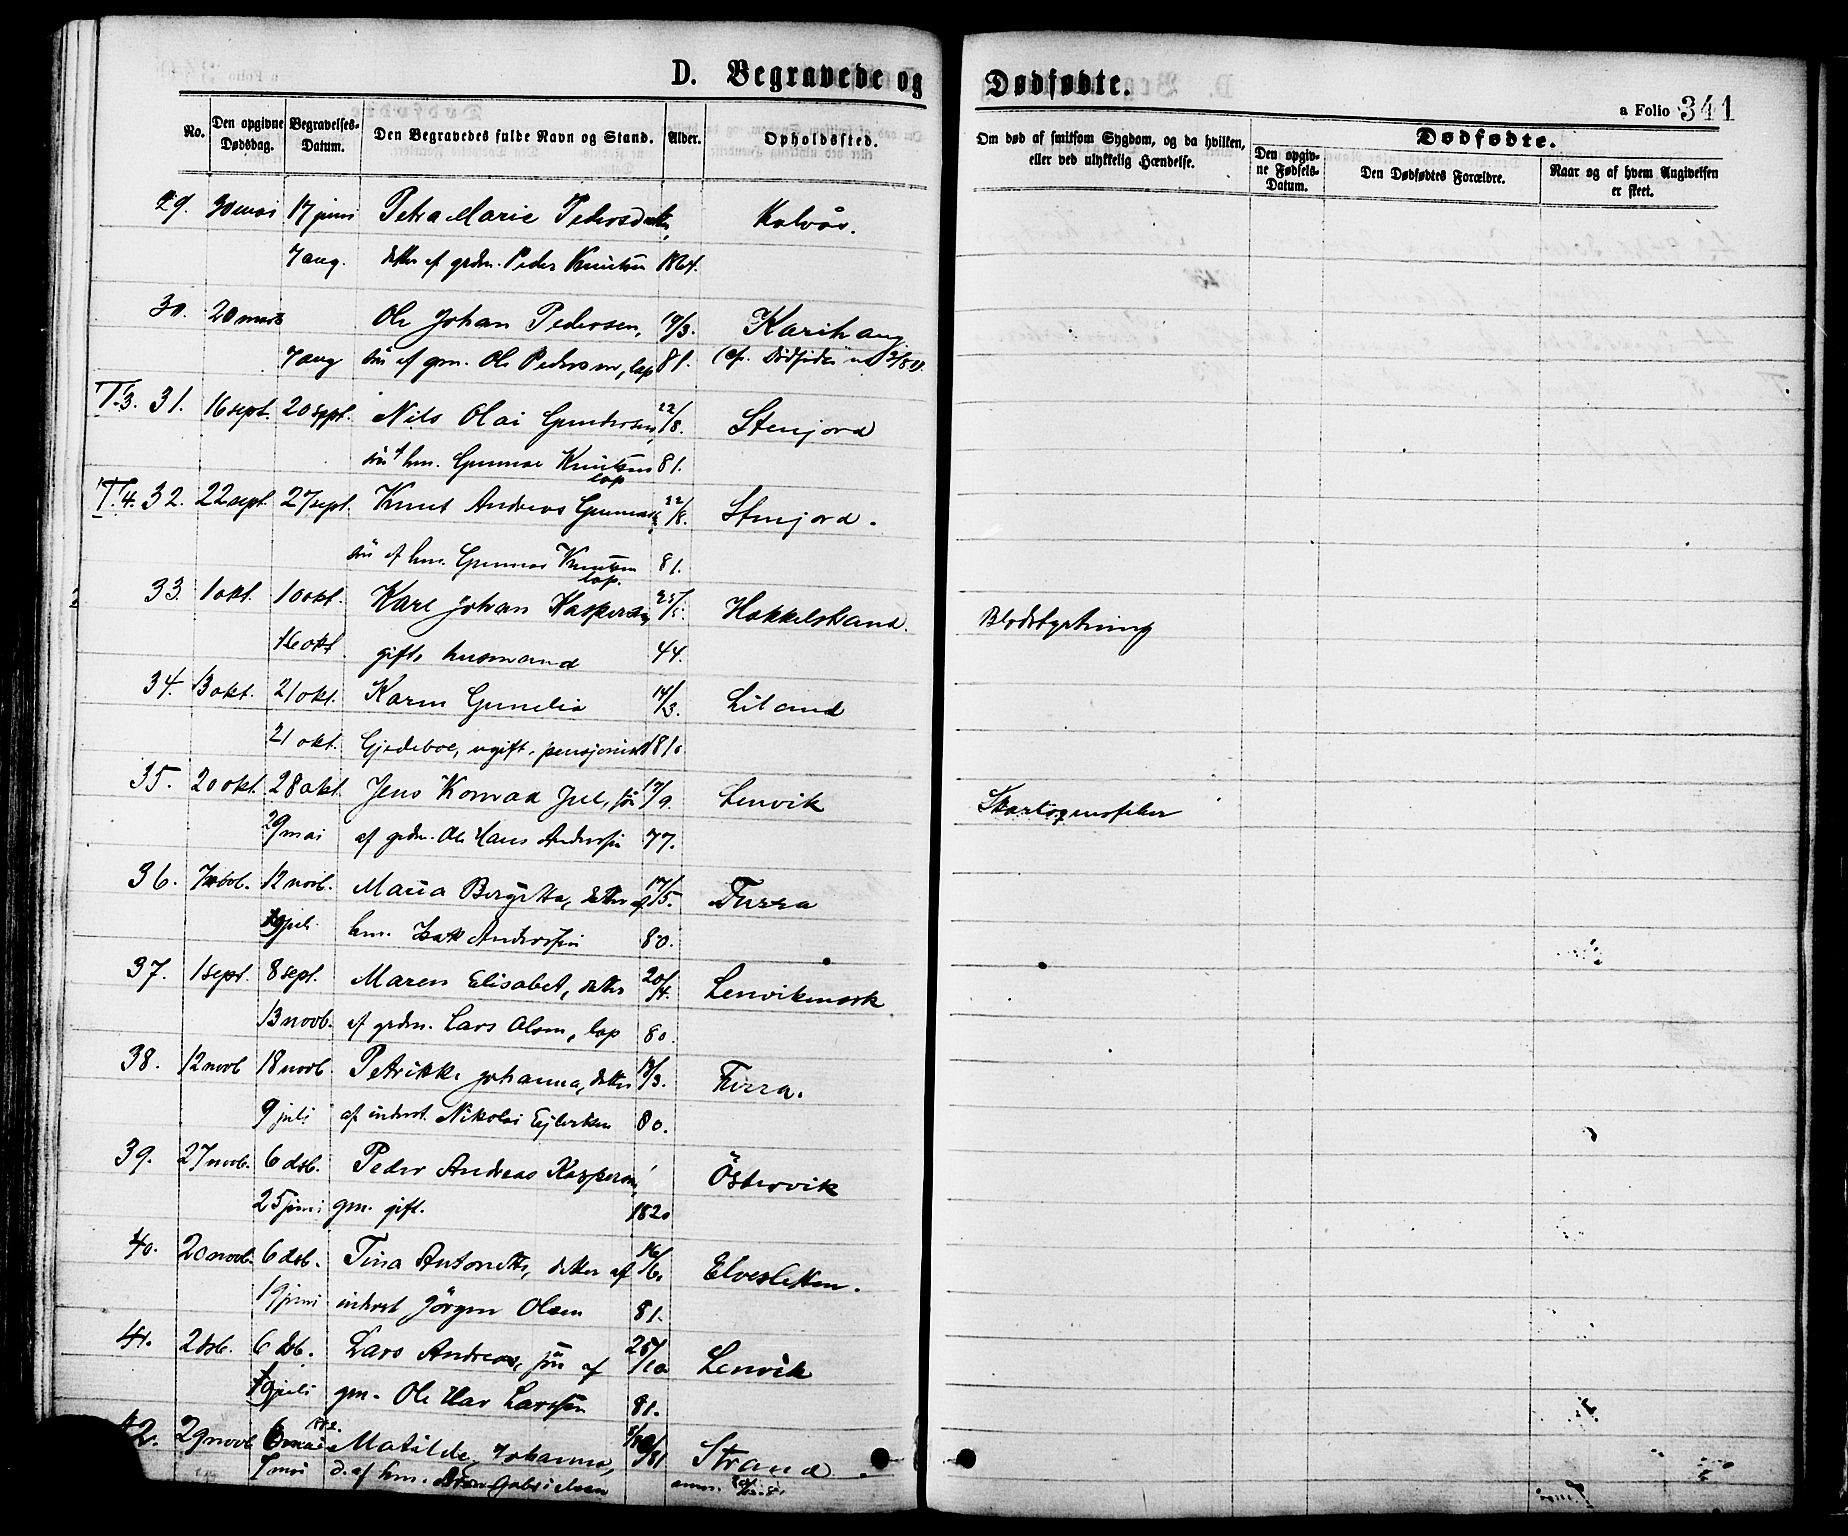 D. Begravede og Dødfødte.
a Folio 341
No.
Den opgivne Dødsdag.
Begravelses-Datum.
Den Begravedes fulde Navn og Stand.
Alder.
Opholdssted.
Om død af smitsom Sygdom, og da hvilken, eller ved ulykkelig Hændelse.
Dødfødte.
Den opgivne Fødsels-Datum.
Den Dødfødtes Forældre.
Naar og af hvem Angivelsen er skeet.
29. 30 mai 17 juni Petra Marie Pedersdatter, Kalvås.
7 aug. datter af grdm. Peder Knutsen 1864.
30. 20 Ole Johan Pedersen, 19/3. Karihaug
7 aug søn af gm. Ole Pedersen, lap 81.
T.3. 31. 16 sept. 20 sept. Nils Olai Gunnersen, 22/8. Stenjord
søn af hm. Gunnar Knutsen lap 81.
T.4. 32. 22 sept. 27 sept. Knut Andreas 22/8. Stenjord.
søn af hm. Gunnar Knutsen lap. 81.
33. 1 okt. 10 okt. Karl Johan Kaspersen, 25/5. Hokkelstrand. Blodstyrtning
16 okt gift husmand 44.
34. 13 okt. 21 okt. Karen Gunelia 14/3. Liland
21 okt. Gjedeboe, ugift, pensjonist 1810
35. 20 okt. 28 okt. Jens Konrad Jul, søn 17/9. Lenvik Skarlagensfeber
29 mai af grdm. Ole Hans Anderssen 77.
36. 7 novb. 12 novb. Maria Bergitta, datter af 17/5. Furra
19 juli. hm. Isak Anderssen 80.
37. 1 sept. 8 sept. Maren Elisabet, datter 20/4. Lenvikmark
13 novb. af grdm. Lars Olsen, lap 80.
38. 12 novb 18 novb. Petrikke Johanna, datter 13/3. Furra.
9 juli af inderst. Nikolai Ejlertsen 80.
39. 27 novb. 6 dsb. Peder Andreas Kaspersen, Östervik
25 juni gm. gift. 1820
40. 20 novb. 6 dsb. Tina Antonette, datter af 16/6. Elvesletten.
19 juni inderst Jörgen Olsen 81.
41. 2 dsb. 6 dsb. Lars Andreas, søn af 25/10 Lenvik
19 juli gm. Ole Larssen 81.
42. 29 novb 6 Matilde Johanna, /81 Strand.
7 mai d. af hm. Gabrielsen